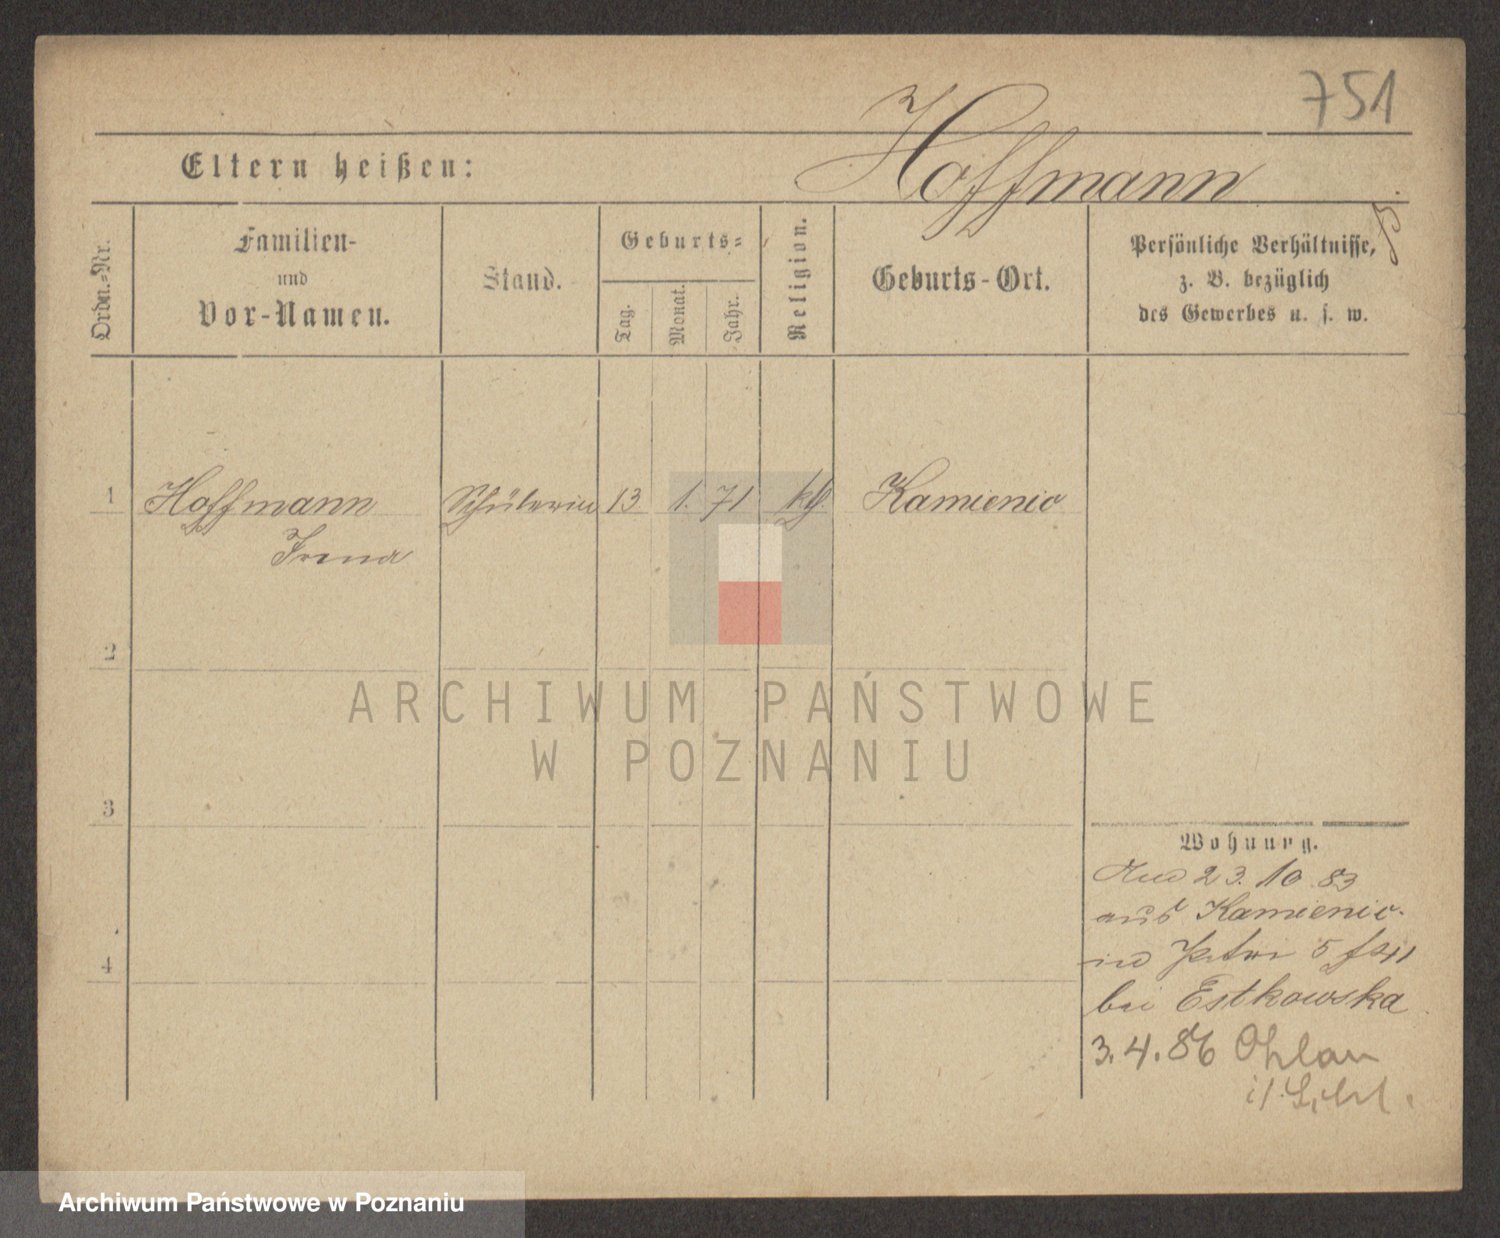 751
Eltern heißen:
Hoffmann
Ordn.-Nr.
Familien-
und
Vor-Namen.
Stand.
Geburts-
Tag.
Monat.
Jahr.
Religion.
Geburts-Ort.
Persönliche Verhältnisse,
z. B. bezüglich
des Gewerbes u. s. w.
1 Hoffmann Schülerin 13 1. 71 kth. Kamieniec
Irena
2
ARCHIWUM PAŃSTWOWE
W POZNANIU
3
4
Wohnung.
23. 10 83
aus Kamieniec.
in Petri 5
bei Estkowska
3. 4. 86 Ohlau
Archiwum Państwowe w Poznaniu